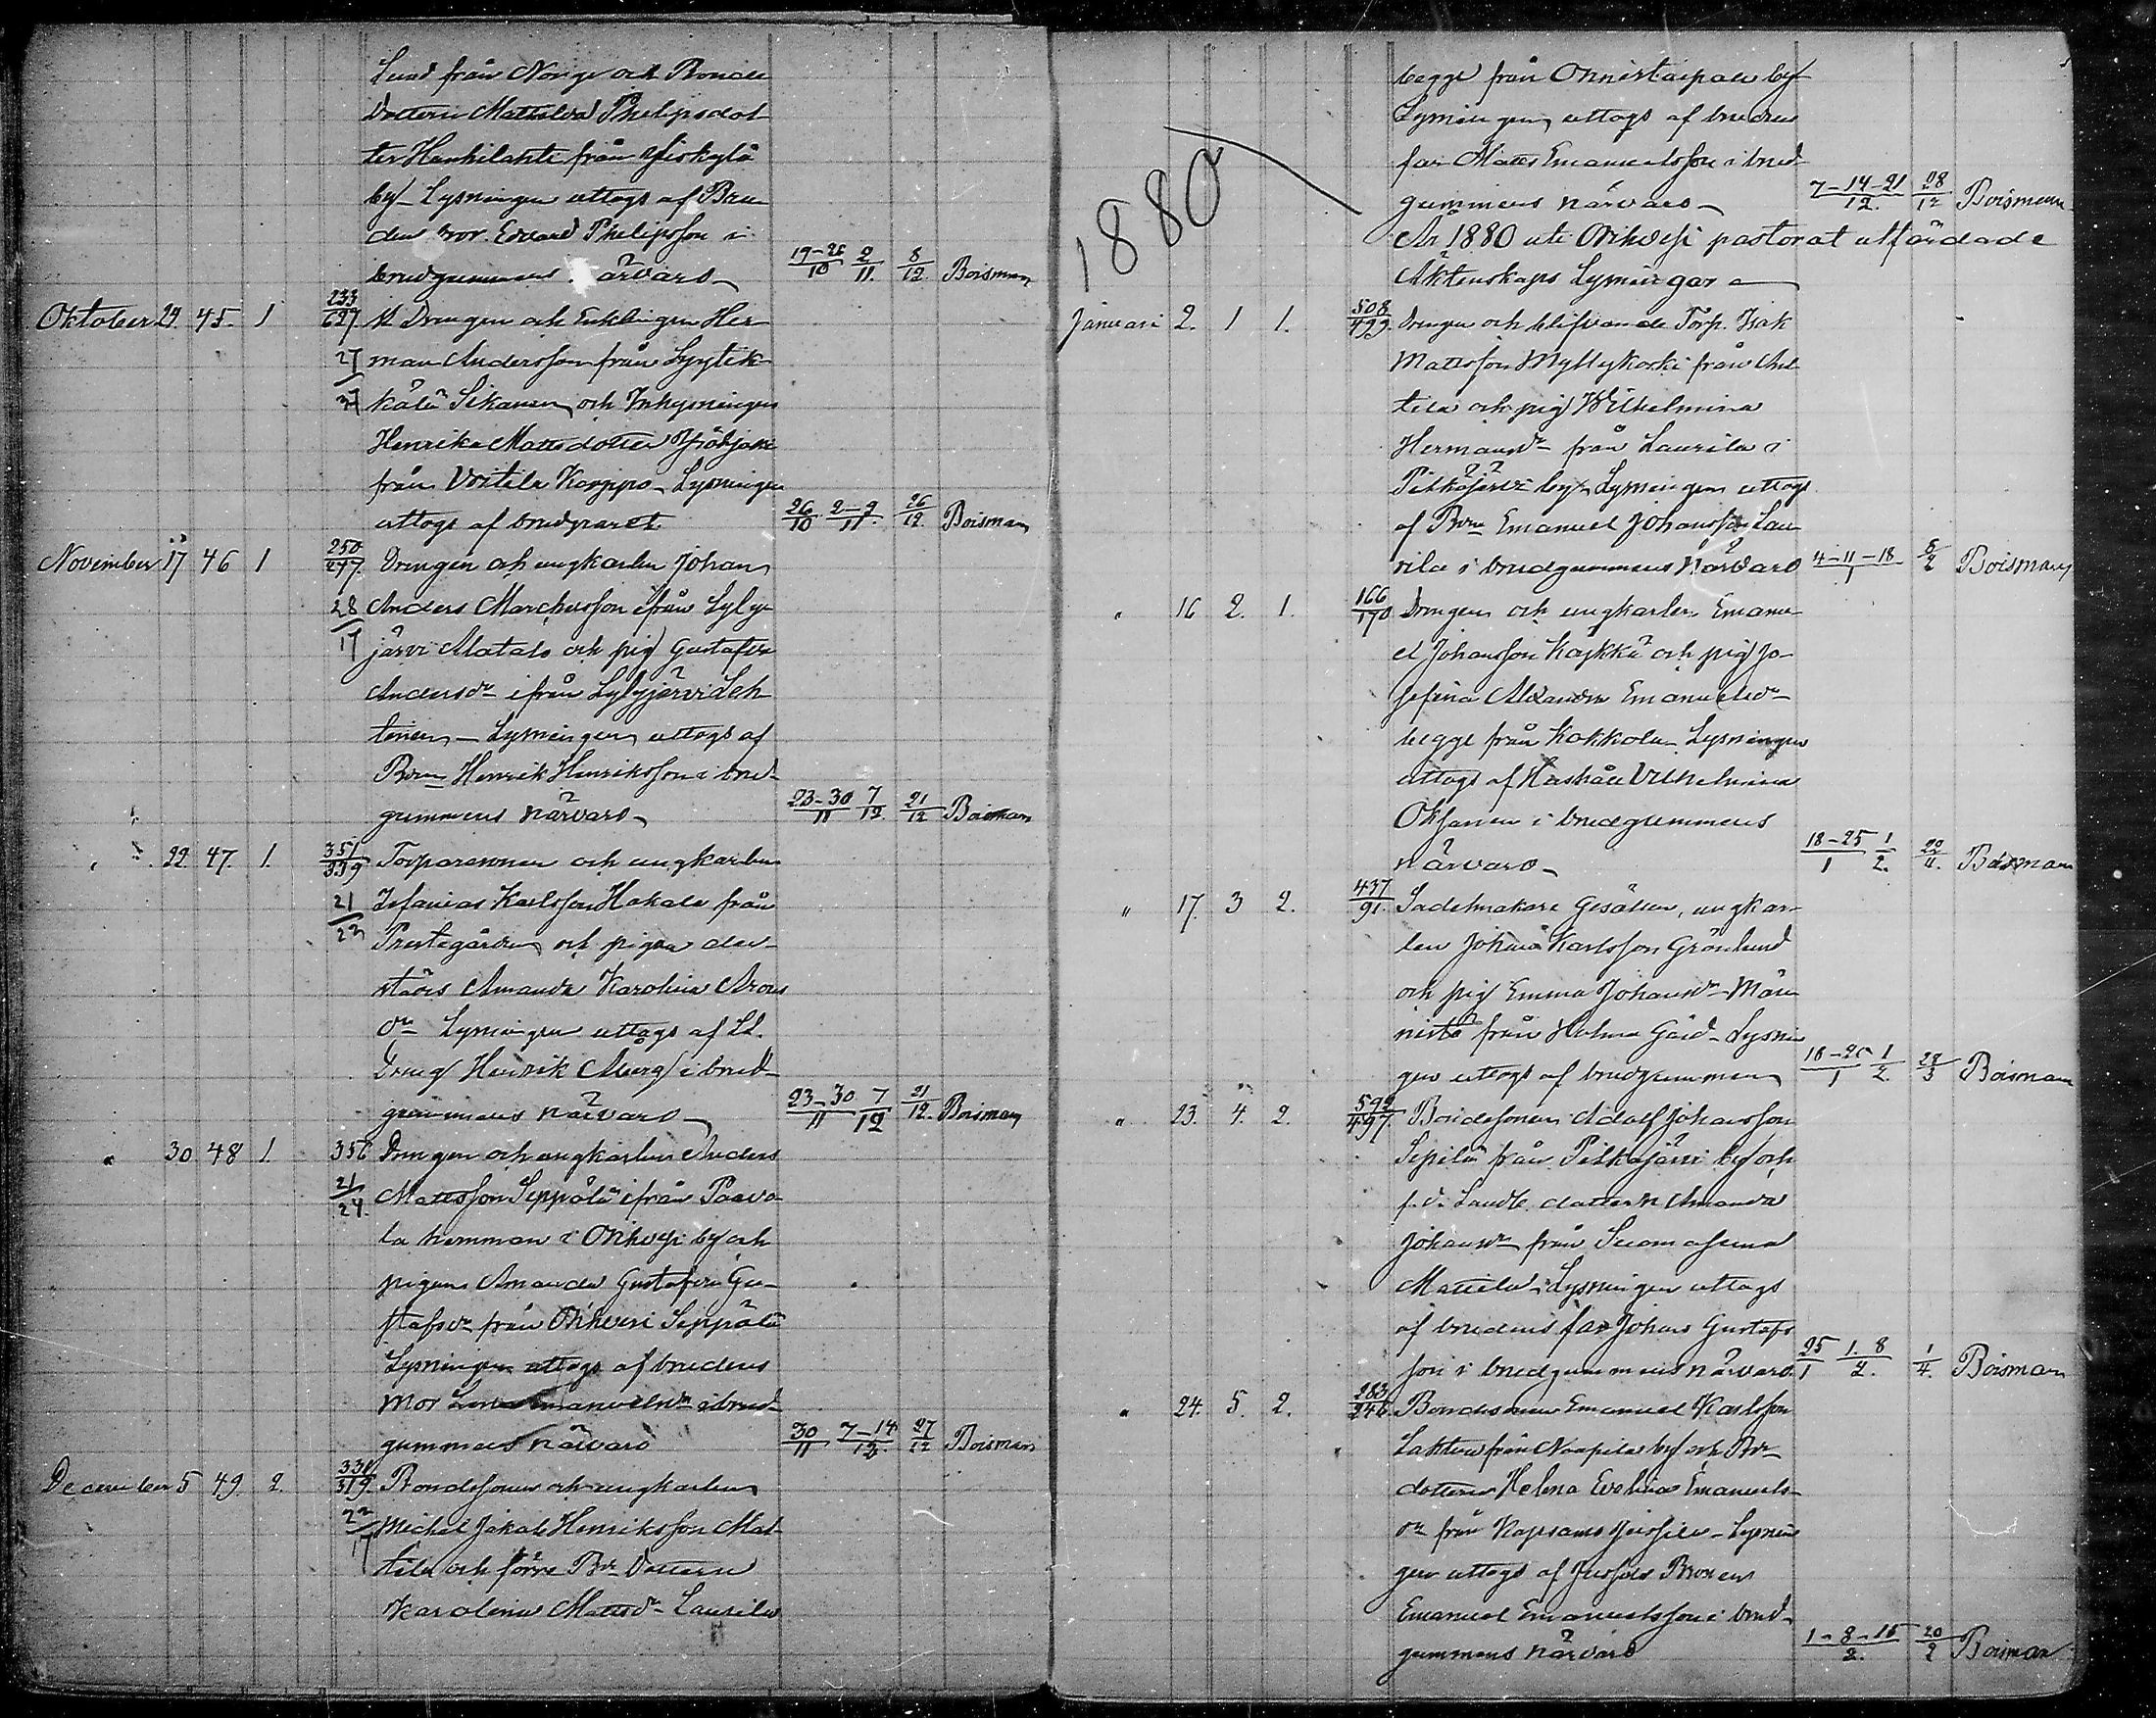 Lund från Norge och Bonde
dottern Matilda Philipsdot
ter Hankilahti från
by - Lysningen uttogs af Bru
dens bror Edvard Philipsson i
brudgummens närvaro - 19-26/10 2/11. 8/12. Boisman
Oktober 29. 45. 1 233/627 Drengen och Enklingen Her
27/27 man Andersson från Lyytik
kälä Sikanen och Inhysningen
Henrika Mattsdotter
från Uotila Karppo - Lysningen
uttogs af brudparet 26/10 2-9/11. 26/12. Boisman
November 17 46 1 250/247. Drengen och ungkarlen Johan
28/17 Anders Marchusson ifrån Lyly
järvi Matala och pig. Gustafva
Andersdr ifrån Lylyjärvi Leh
tinen - Lysningen uttogs af
Bvn Henrik Henriksson i brud-
gummens närvaro - 23-30/11 7/12. 21/12 Boisman
" 22. 47. 1. 351/339 Torparennen och ungkarlen
21/23 Zefanias Karlsson Hakala från
Prestegården och pigan der-
städs Amanda Karolina Arons
dr Lysningen uttogs af
Dreng Henrik i brud-
gummens närvaro - 23-30/11 7/12 21/12. Boisman
" 30. 48 1. 356 Drengen och ungkarlen Anders
21/24. Mattsson Seppälä ifrån Paavo
la hemman i Orihvesi by och
pigan Amanda Gustafva Gu-
stafsdr från Orihvesi Seppälä
Lysningen uttogs af brudens
mor Lena Emanuelsdr i brud-
gummens närvaro 30/11 7-14/12. 27/12 Boisman
December 5 49. 2. 330/319. Bondesonen och ungkarlen
22/17 Michel Jakob Henriksson Mat
tila och förre Bdr Dottern
Karolina Mattsdr Laurila
begge från Onnistaipale by
Lysningen uttogs af brudens
far Matts Emanuelsson i brud
gummens närvaro - 7-14-21/12. 28/12 Boisman
1880
År 1880 uti Orihvesi pastorat utfärdade
Äktenskaps Lysningar
Januari 2. 1 1. 508/499. Drengen och blifvande Torp. Isak
Mattsson Myllykoski från An
tila och pig. Wilhelmina
Hermansdr från Laurila i
Pitkäjärvi by - Lysningen uttogs
af Bvn Emanuel Johansson Lau
rila i brudgummens närvaro 4-11-18/1 5/2 Boisman
" 16 2. 1. 166/170 Drengen och ungkarlen Emanu
el Johansson Kaykkä och pig. Jo-
sefina Alexandra Emanuelsdr
begge från Kokkola - Lysningen
uttogs af Wilhelmina
Oksanen i brudgummens
närvaro - 18-25/1 1/2. 22/11. Boisman
" 17. 3 2. 437/91. Sadelmakare Gesällen, ungkar
len Johan Karlsson Grönlund
och pig. Emma Johansdr Män
nistö från Holma Gård - Lysnin
gen uttogs af brudgummen 18-25/1 1/2. 28/3 Boisman
" 23. 4. 2. 592/497. Bondesonen Adolf Johansson
Sepilä från Pitkäjärvi by och
f. d. Landb. dottern Amanda
Johansdr från Suomasema
Mattila - Lysningen uttogs
af brudens far Johan Gustafs
son i brudgummens närvaro. 25/1 1. 8/2. 1/4. Boisman
" 24. 5. 2. 283/246. Bondesonen Emanuel Karlsson
Lahtinen från Naapila by och Bdr
dottern Helena Evelina Emanuels
dr från Kapsamo Jussila - Lysnin
gen uttogs af Jussila Bonden
Emanuel Emanuelsson i brud-
gummens närvaro 1-8-15/2. 20/2 Boisman